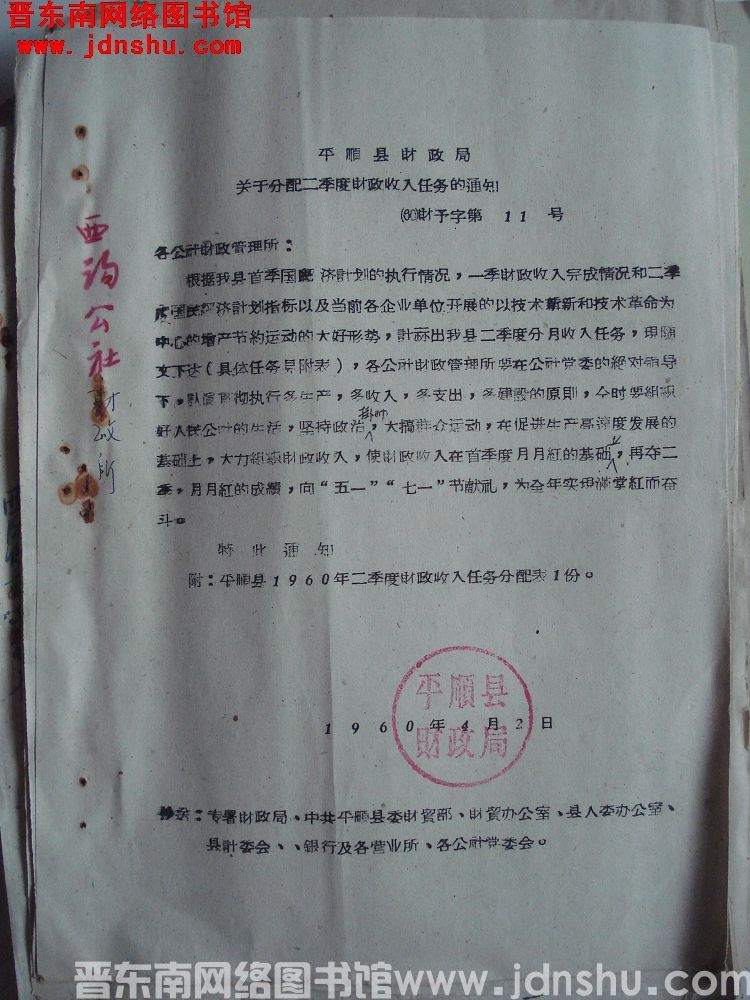 晋东南网络图书馆
www.jdnshu.com
平順县財政局
关于分配二季度財政收入任务的通知
(60)財予字第 11 号
西沟公社
財政所
各公社財政管理所：
根据我县首季国民经济計划的执行情况，一季財政收入完成情况和二季
度国民经济計划指标以及当前各企业单位开展的以技术革新和技术革命为
中心的增产节約运动的大好形势，計标出我县二季度分月收入任务，現随
文下达（具体任务見附表），各公社財政管理所要在公社党委的絶对領导
下，認真貫彻执行多生产，多收入，多支出，多建設的原則，今时要組織
好人民公社的生活，坚持政治掛帅，大搞群众运动，在促进生产高速度发展的
基础上，大力組織財政收入，使財政收入在首季度月月紅的基础上，再夺二
季，月月紅的成績，向“五一”“七一”节献礼，为全年实現滿堂紅而奋
斗。
特此通知
附：平順县1960年二季度財政收入任务分配表1份。
平順县
財政局
1960年4月2日
抄送：专署財政局、中共平順县委財貿部、財貿办公室、县人委办公室、
县計委会、、銀行及各营业所、各公社党委会。
晋东南网络图书馆www.jdnshu.com